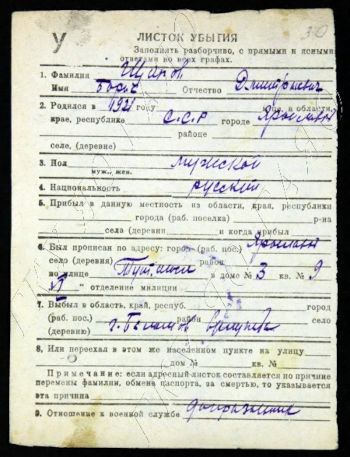 У
ЛИСТОК УБЫТИЯ
Заполнять разборчиво, с прямыми и ясными
ответами во всех графах.
1. Фамилия Щаров
Имя Борис Отчество Дмитриевич
2. Родился в 1921 году в области,
крае, республике С.С.Р городе Ярославль
районе
селе, (деревне)
3. Пол мужской
муж., жен.
4. Национальность русский
5. Прибыл в данную местность из области, края, республики
города (раб. поселка) р-на
села (деревни и когда прибыл
6. Был прописан по адресу: город (раб. пос.) Ярославль
село (деревня) район
по улице в доме № 3 кв. № 9
" отделение милиции
7. Выбыл в область, край, респуб. город
(раб. пос.) район село
(деревню) г.
8. Или переехал в этом же населенном пункте на улицу
дом № кв. №
Примечание: если адресный листок составляется по причине
перемены фамилии, обмена паспорта, за смертью, то указывается
эта причина
9. Отношение к военной службе